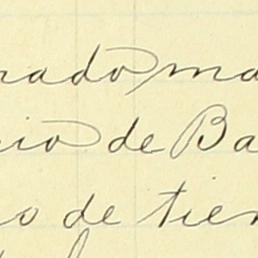 rado ma
io de Ba
o de tien